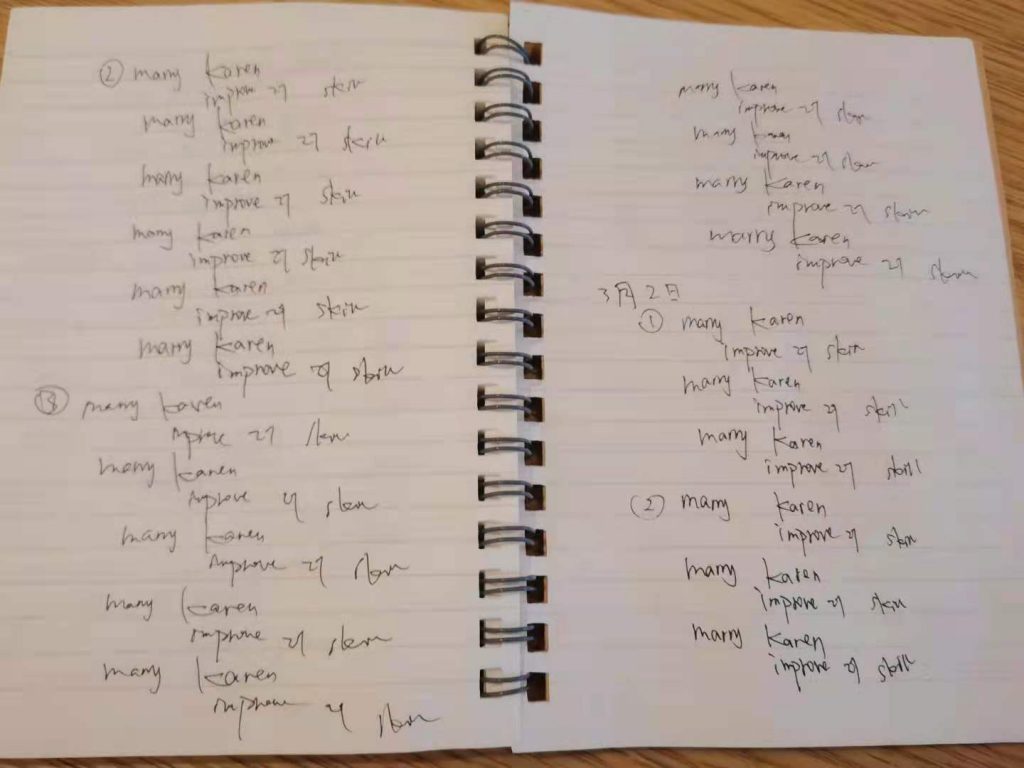 ② marry karen
improve skin
marry karen
improve skin
marry karen
improve skin
marry karen
improve skin
marry karen
improve skin
marry karen
improve skin
③ marry karen
improve
marry karen
improve
marry karen
improve
marry karen
improve
marry karen
improve
marry karen
improve
marry karen
improve
marry karen
improve skin
marry karen
improve skin
3月2日
① marry karen
improve skin
marry karen
improve skill
marry karen
improve skill
② marry karen
improve skin
marry karen
improve skin
marry karen
improve skill